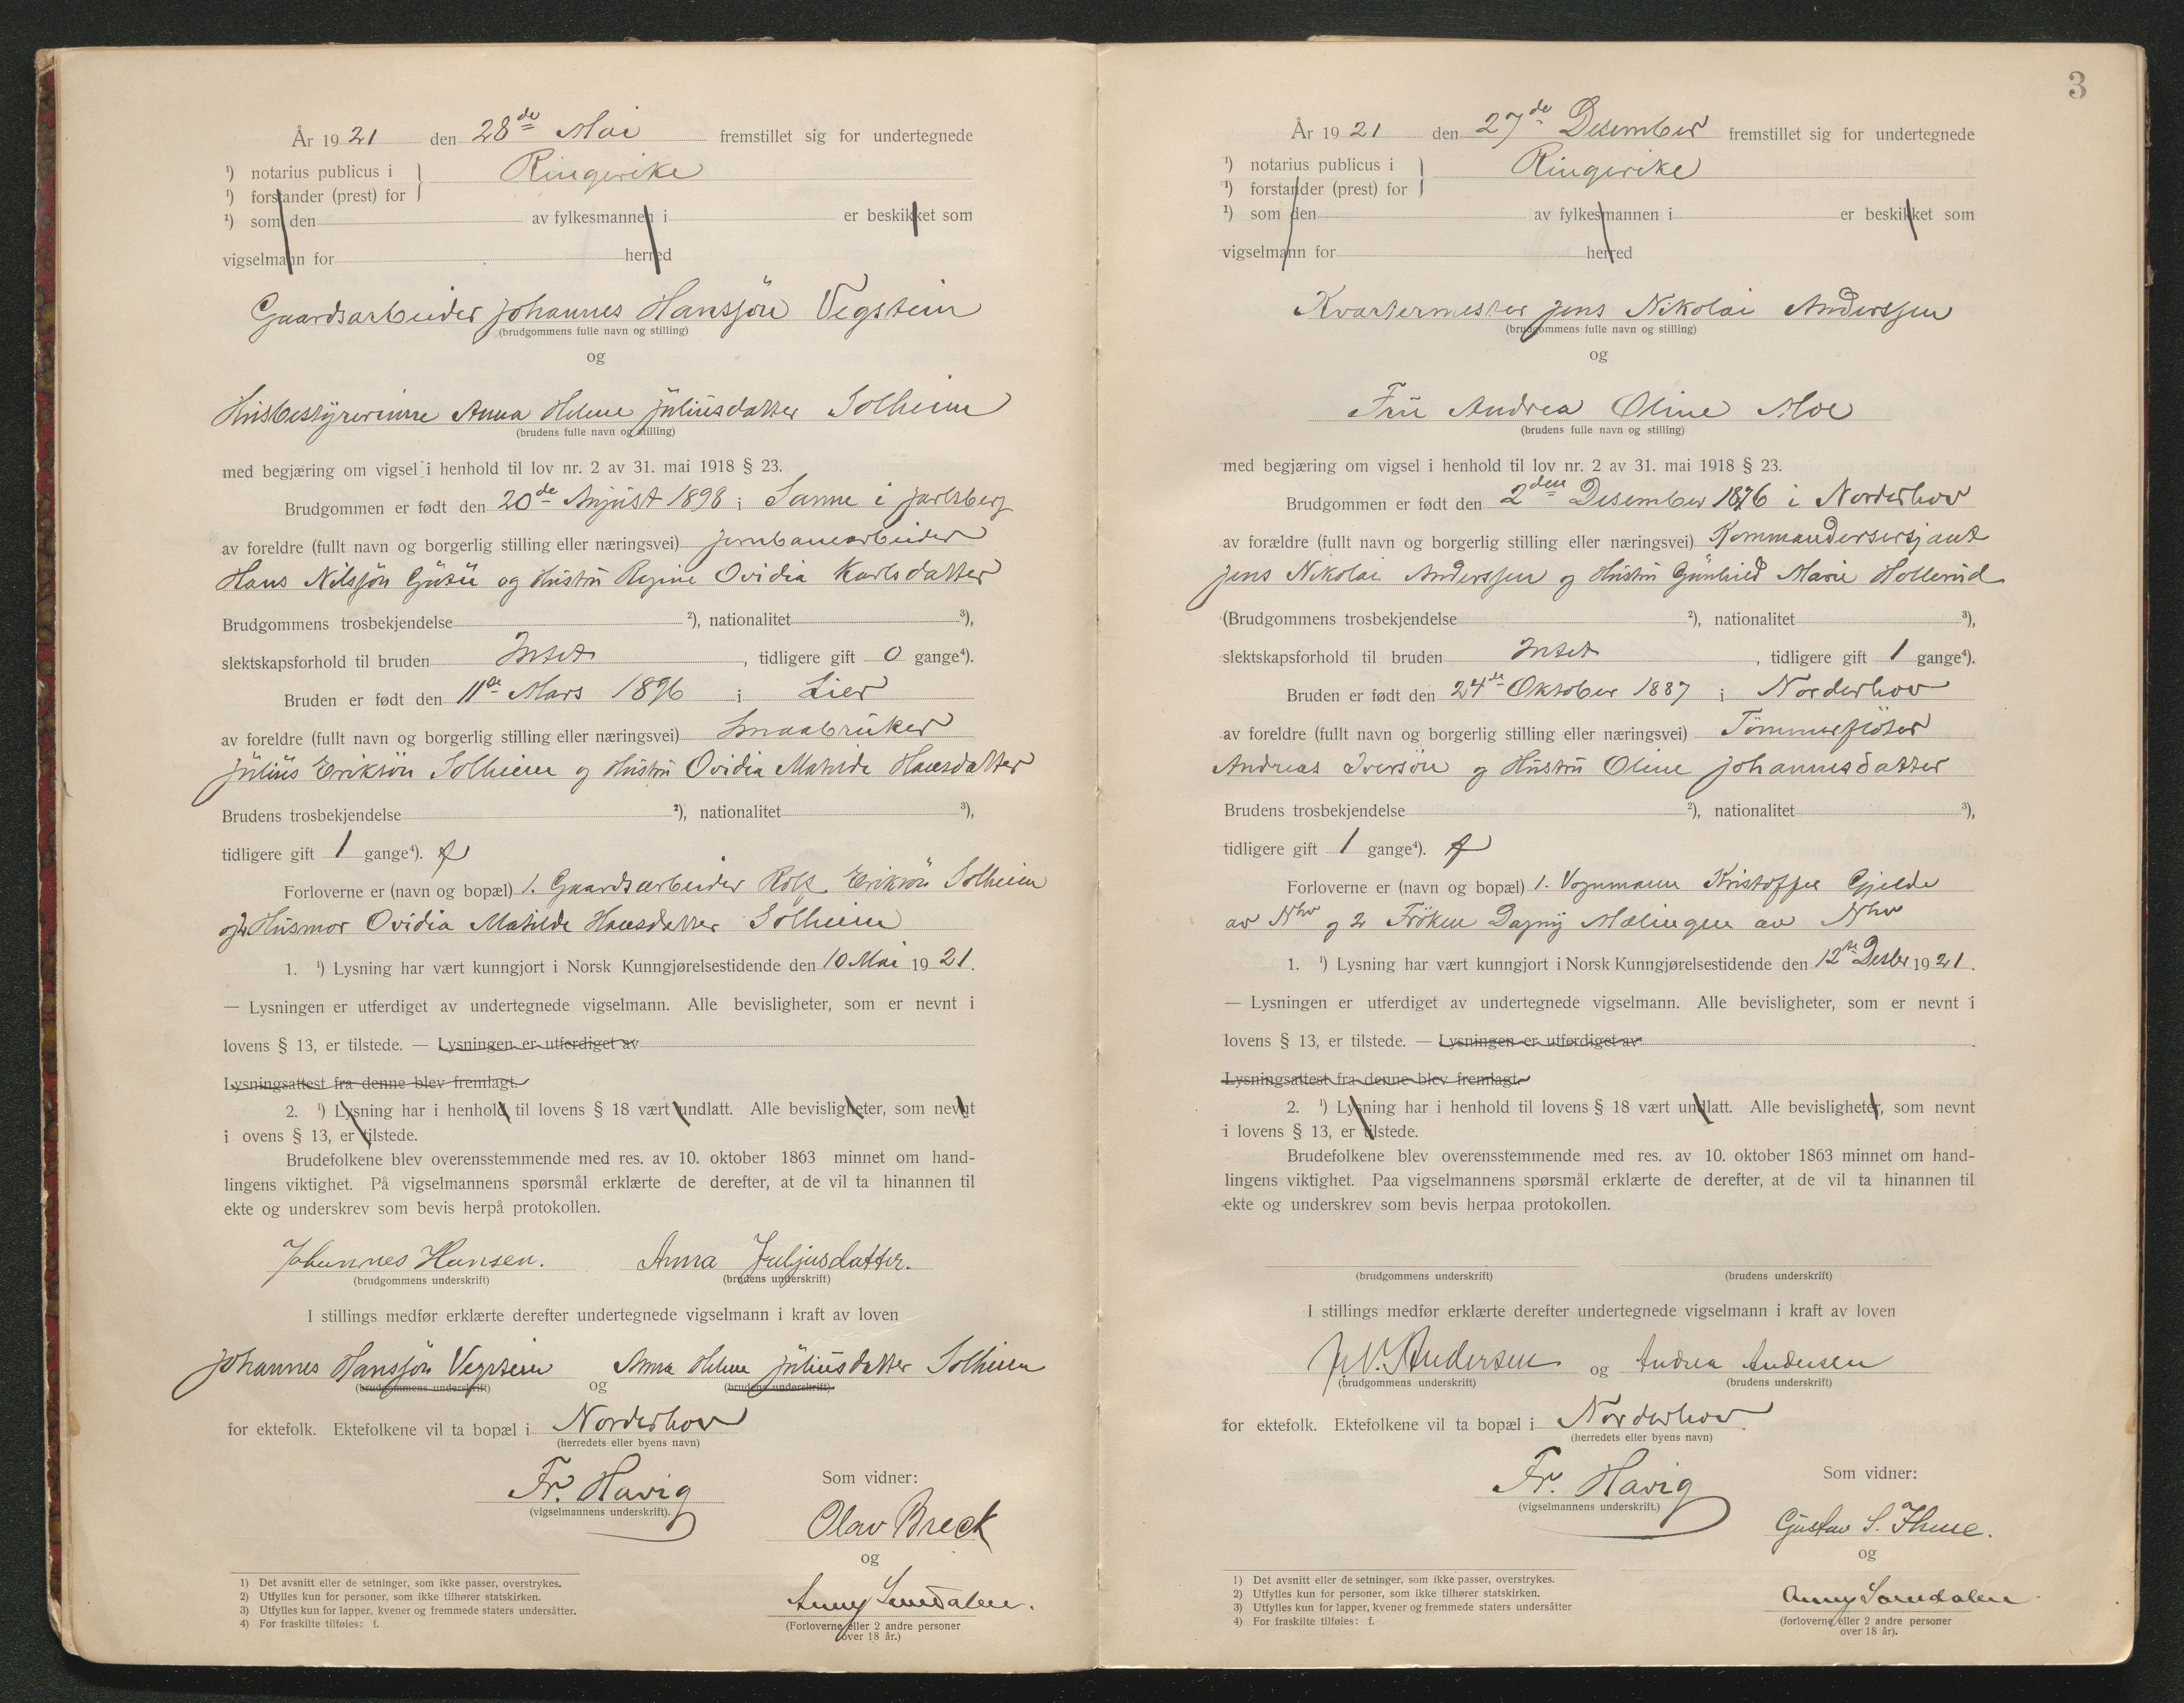 År 1921 den 28de Mai fremstillet sig for undertegnede
¹) notarius publicus i } Ringerike
¹) forstander (prest) for
¹) som den av fylkesmannen i er beskikket som
vigselmann for herred
Gaardsarbeider Johannes Hanssøn Vegstein
(brudgommens fulle navn og stilling)
og
Husbestyrerinne Anna Helene Juliusdatter Solheim
(brudens fulle navn og stilling)
med begjæring om vigsel i henhold til lov nr. 2 av 31. mai 1918 § 23.
Brudgommen er født den 20de August 1898 i Sanne i Jarlsberg
av foreldre (fullt navn og borgerlig stilling eller næringsvei) Jernbanearbeider
Hans Nilssøn og Hustru Regine Ovidia Karlsdatter
Brudgommens trosbekjendelse ²), nationalitet ³),
slektskapsforhold til bruden Intet, tidligere gift 0 gange⁴).
Bruden er født den 11te Mars 1896 i Lier
av foreldre (fullt navn og borgerlig stilling eller næringsvei) Smaabruker
Julius Eriksøn Solheim og Hustru Ovidia Matilde Hansdatter
Brudens trosbekjendelse ²), nationalitet ³),
tidligere gift 1 gange⁴). f
Forloverne er (navn og bopæl) 1. Gaardsarbeider Rolf Eriksøn Solheim
og 2 Husmor Ovidia Matilde Hansdatter Solheim
1. ¹) Lysning har vært kunngjort i Norsk Kunngjørelsestidende den 10 Mai 1921.
— Lysningen er utferdiget av undertegnede vigselmann. Alle bevisligheter, som er nevnt i
lovens § 13, er tilstede. — Lysningen er utferdiget av
Lysningsattest fra denne blev fremlagt.
2. ¹) Lysning har i henhold til lovens § 18 vært undlatt. Alle bevisligheter, som nevnt
i ovens § 13, er tilstede.
Brudefolkene blev overensstemmende med res. av 10. oktober 1863 minnet om hand-
lingens viktighet. På vigselmannens spørsmål erklærte de derefter, at de vil ta hinannen til
ekte og underskrev som bevis herpå protokollen.
Johannes Hansen. Anna Juljusdatter.
(brudgommens underskrift) (brudens underskrift)
I stillings medfør erklærte derefter undertegnede vigselmann i kraft av loven
Johannes Hanssøn Vegstein og Anna Helene Juliusdatter Solheim
(brudgommens underskrift) (brudens underskrift)
for ektefolk. Ektefolkene vil ta bopæl i Norderhov
(herredets eller byens navn)
Fr. Havig
(vigselmannens underskrift).
Som vidner:
Olav Breck
og
Anny Samdalen.
(Forloverne eller 2 andre personer
over 18 år.)
1) Det avsnitt eller de setninger, som ikke passer, overstrykes.
2) Utfylles kun for personer, som ikke tilhører statskirken.
3) Utfylles kun for lapper, kvener og fremmede staters undersåtter.
4) For fraskilte tilføies: f.
3
År 1921 den 27de Desember fremstillet sig for undertegnede
¹) notarius publicus i } Ringerike
¹) forstander (prest) for
¹) som den av fylkesmannen i er beskikket som
vigselmann for herred
Kvartermester Jens Nikolai Anderssen
(brudgommens fulle navn og stilling)
og
Fru Andrea Oline Moe
(brudens fulle navn og stilling)
med begjæring om vigsel i henhold til lov nr. 2 av 31. mai 1918 § 23.
Brudgommen er født den 2den Desember 1876 i Norderhov
av forældre (fullt navn og borgerlig stilling eller næringsvei) Kommandersersjant
Jens Nikolai Anderssen og Hustru Gunhild Marie Hollerud
(Brudgommens trosbekjendelse ²), nationalitet ³),
slektskapsforhold til bruden Intet, tidligere gift 1 gange⁴).
Bruden er født den 24de Oktober 1887 i Norderhov
av foreldre (fullt navn og borgerlig stilling eller næringsvei) Tømmerfløter
Andreas Iversøn og Hustru Oline Johannesdatter
Brudens trosbekjendelse ²), nationalitet ³),
tidligere gift 1 gange⁴). f
Forloverne er (navn og bopæl) 1. Vognmann Kristoffer Gjelde
av Nhv og 2 Frøken Dagny Mælingen av Nhv
1. ¹) Lysning har vært kunngjort i Norsk Kunngjørelsestidende den 12te Desbr 1921.
— Lysningen er utferdiget av undertegnede vigselmann. Alle bevisligheter, som er nevnt i
lovens § 13, er tilstede. — Lysningen er utferdiget av
Lysningsattest fra denne blev fremlagt.
2. ¹) Lysning har i henhold til lovens § 18 vært undlatt. Alle bevisligheter, som nevnt
i lovens § 13, er tilstede.
Brudefolkene blev overensstemmende med res. av 10. oktober 1863 minnet om hand-
lingens viktighet. Paa vigselmannens spørsmål erklærte de derefter, at de vil ta hinannen til
ekte og underskrev som bevis herpaa protokollen.
(brudgommens underskrift) (brudens underskrift)
I stillings medfør erklærte derefter undertegnede vigselmann i kraft av loven
J.N. Andersen og Andrea Andersen
(brudgommens underskrift) (brudens underskrift)
for ektefolk. Ektefolkene vil ta bopæl i Norderhov.
(herredets eller byens navn)
Fr. Havig
(vigselmannens underskrift.)
Som vidner:
Gustav S. Thue.
og
Anny Samdalen
(forloverne eller 2 andre personer
over 18 år).
1) Det avsnitt eller de setninger, som ikke passer, overstrykes.
2) Utfylles kun for personer, som ikke tilhører statskirken.
3) Utfylles kun for lapper, kvener og fremmede staters undersåtter
4) For fraskilte tilføies: f.